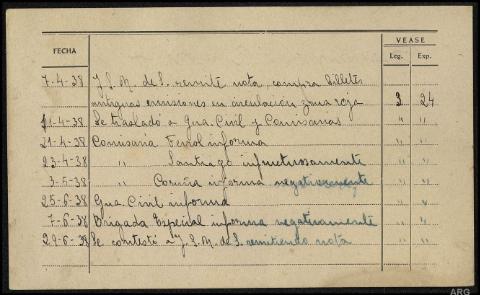 VEASE
FECHA Leg. Exp.
7-4-38 J.S.M. de S. remite nota, compra billetes
antiguas emisiones en circulacion zona roja 3 24
11-4-38 Se trasladó a Gua. Civil y Comisarias " "
21-4-38 Comisaría Ferrol informa " "
23-4-38 " Santiago infructuosamente " "
3-5-38 " Coruña informa negativamente " "
25-6-38 Gua. Civil informa " "
7-6-38 Brigada Especial informa negativamente " "
29-6-38 Se contestó a J.S.M. de S. remitiendo nota " "
ARG